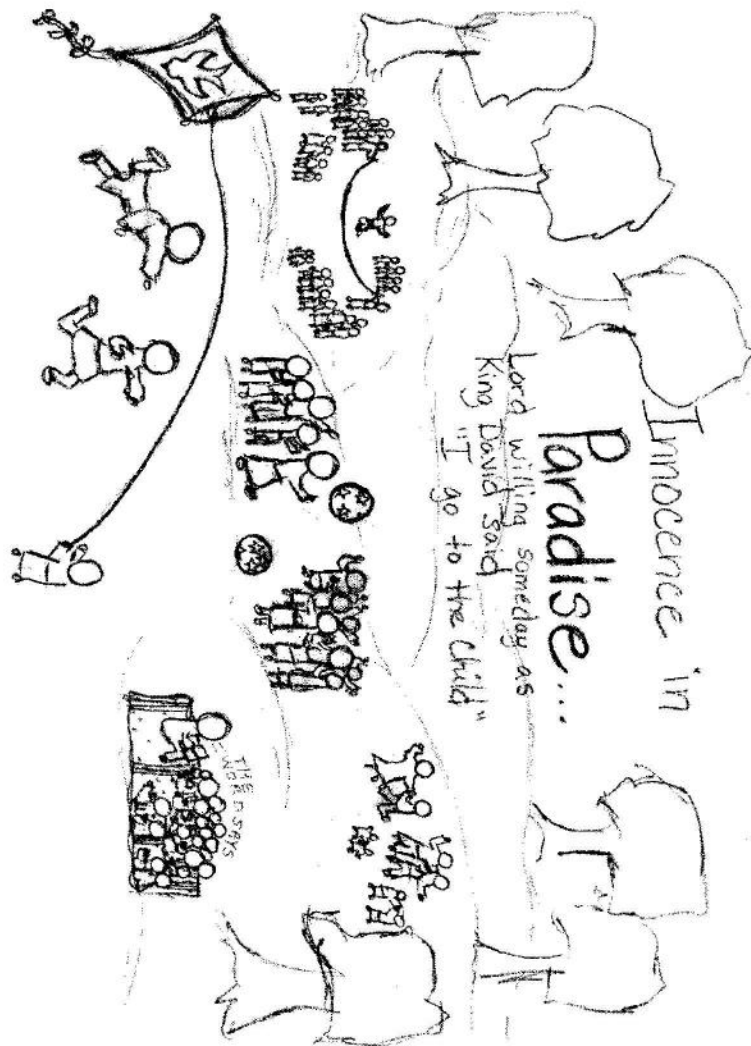 Innocence in
Paradise...
Lord willing someday as
King David said
"I go to the Child"
THE
WORD SAYS